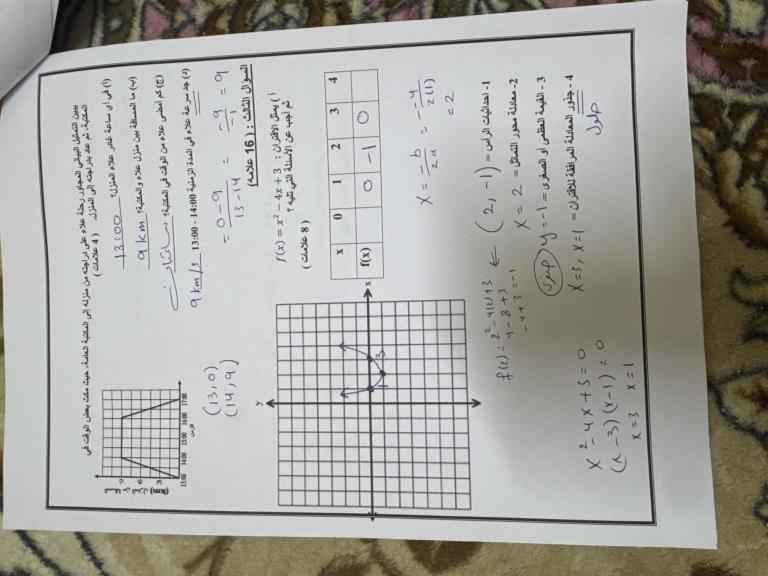 يبين التمثيل البياني المجاور رحلة علاء على دراجته من منزله إلى المكتبة العامة، حيث مكث بعض الوقت في
المكتبة، ثم عاد بدراجته إلى المنزل. ( 4 علامات )
أ) في أي ساعة غادر علاء المنزل؟ 13:00
ب) ما المسافة بين منزل علاء والمكتبة؟ 9 km
ج) كم أمضى علاء من الوقت في المكتبة؟ ساعتان
د) جد سرعة علاء في المدة الزمنية 13:00 - 14:00 9 km/
(km)
9
6
3
13:00 14:00 15:00 16:00 17:00
الزمن
(13,0)
(14,9)
= 0-9 / 13-14 = -9 / -1 = 9
السؤال الثالث : ( 16 علامة )
أ) يمثل الاقتران : f(x) = x² − 4x + 3
ثم أجب عن الأسئلة التي تليه ؟
( 8 علامات )
x 0 1 2 3 4
f(x) 0 -1 0
y
x
1 3
x = -b / 2a = - -4 / 2(1)
= 2
1- احداثيات الراس = (2, -1)
f(2) = 2² - 4(2) + 3
4 - 8 + 3
-4 + 3 = -1
2- معادلة محور التماثل = x = 2
3- القيمة العظمى أو الصغرى = y = -1 صغرى
4- جذور المعادلة المرافقة للاقتران = x=3, x=1
حلول
x² - 4x + 3 = 0
(x - 3)(x - 1) = 0
x = 3 x = 1